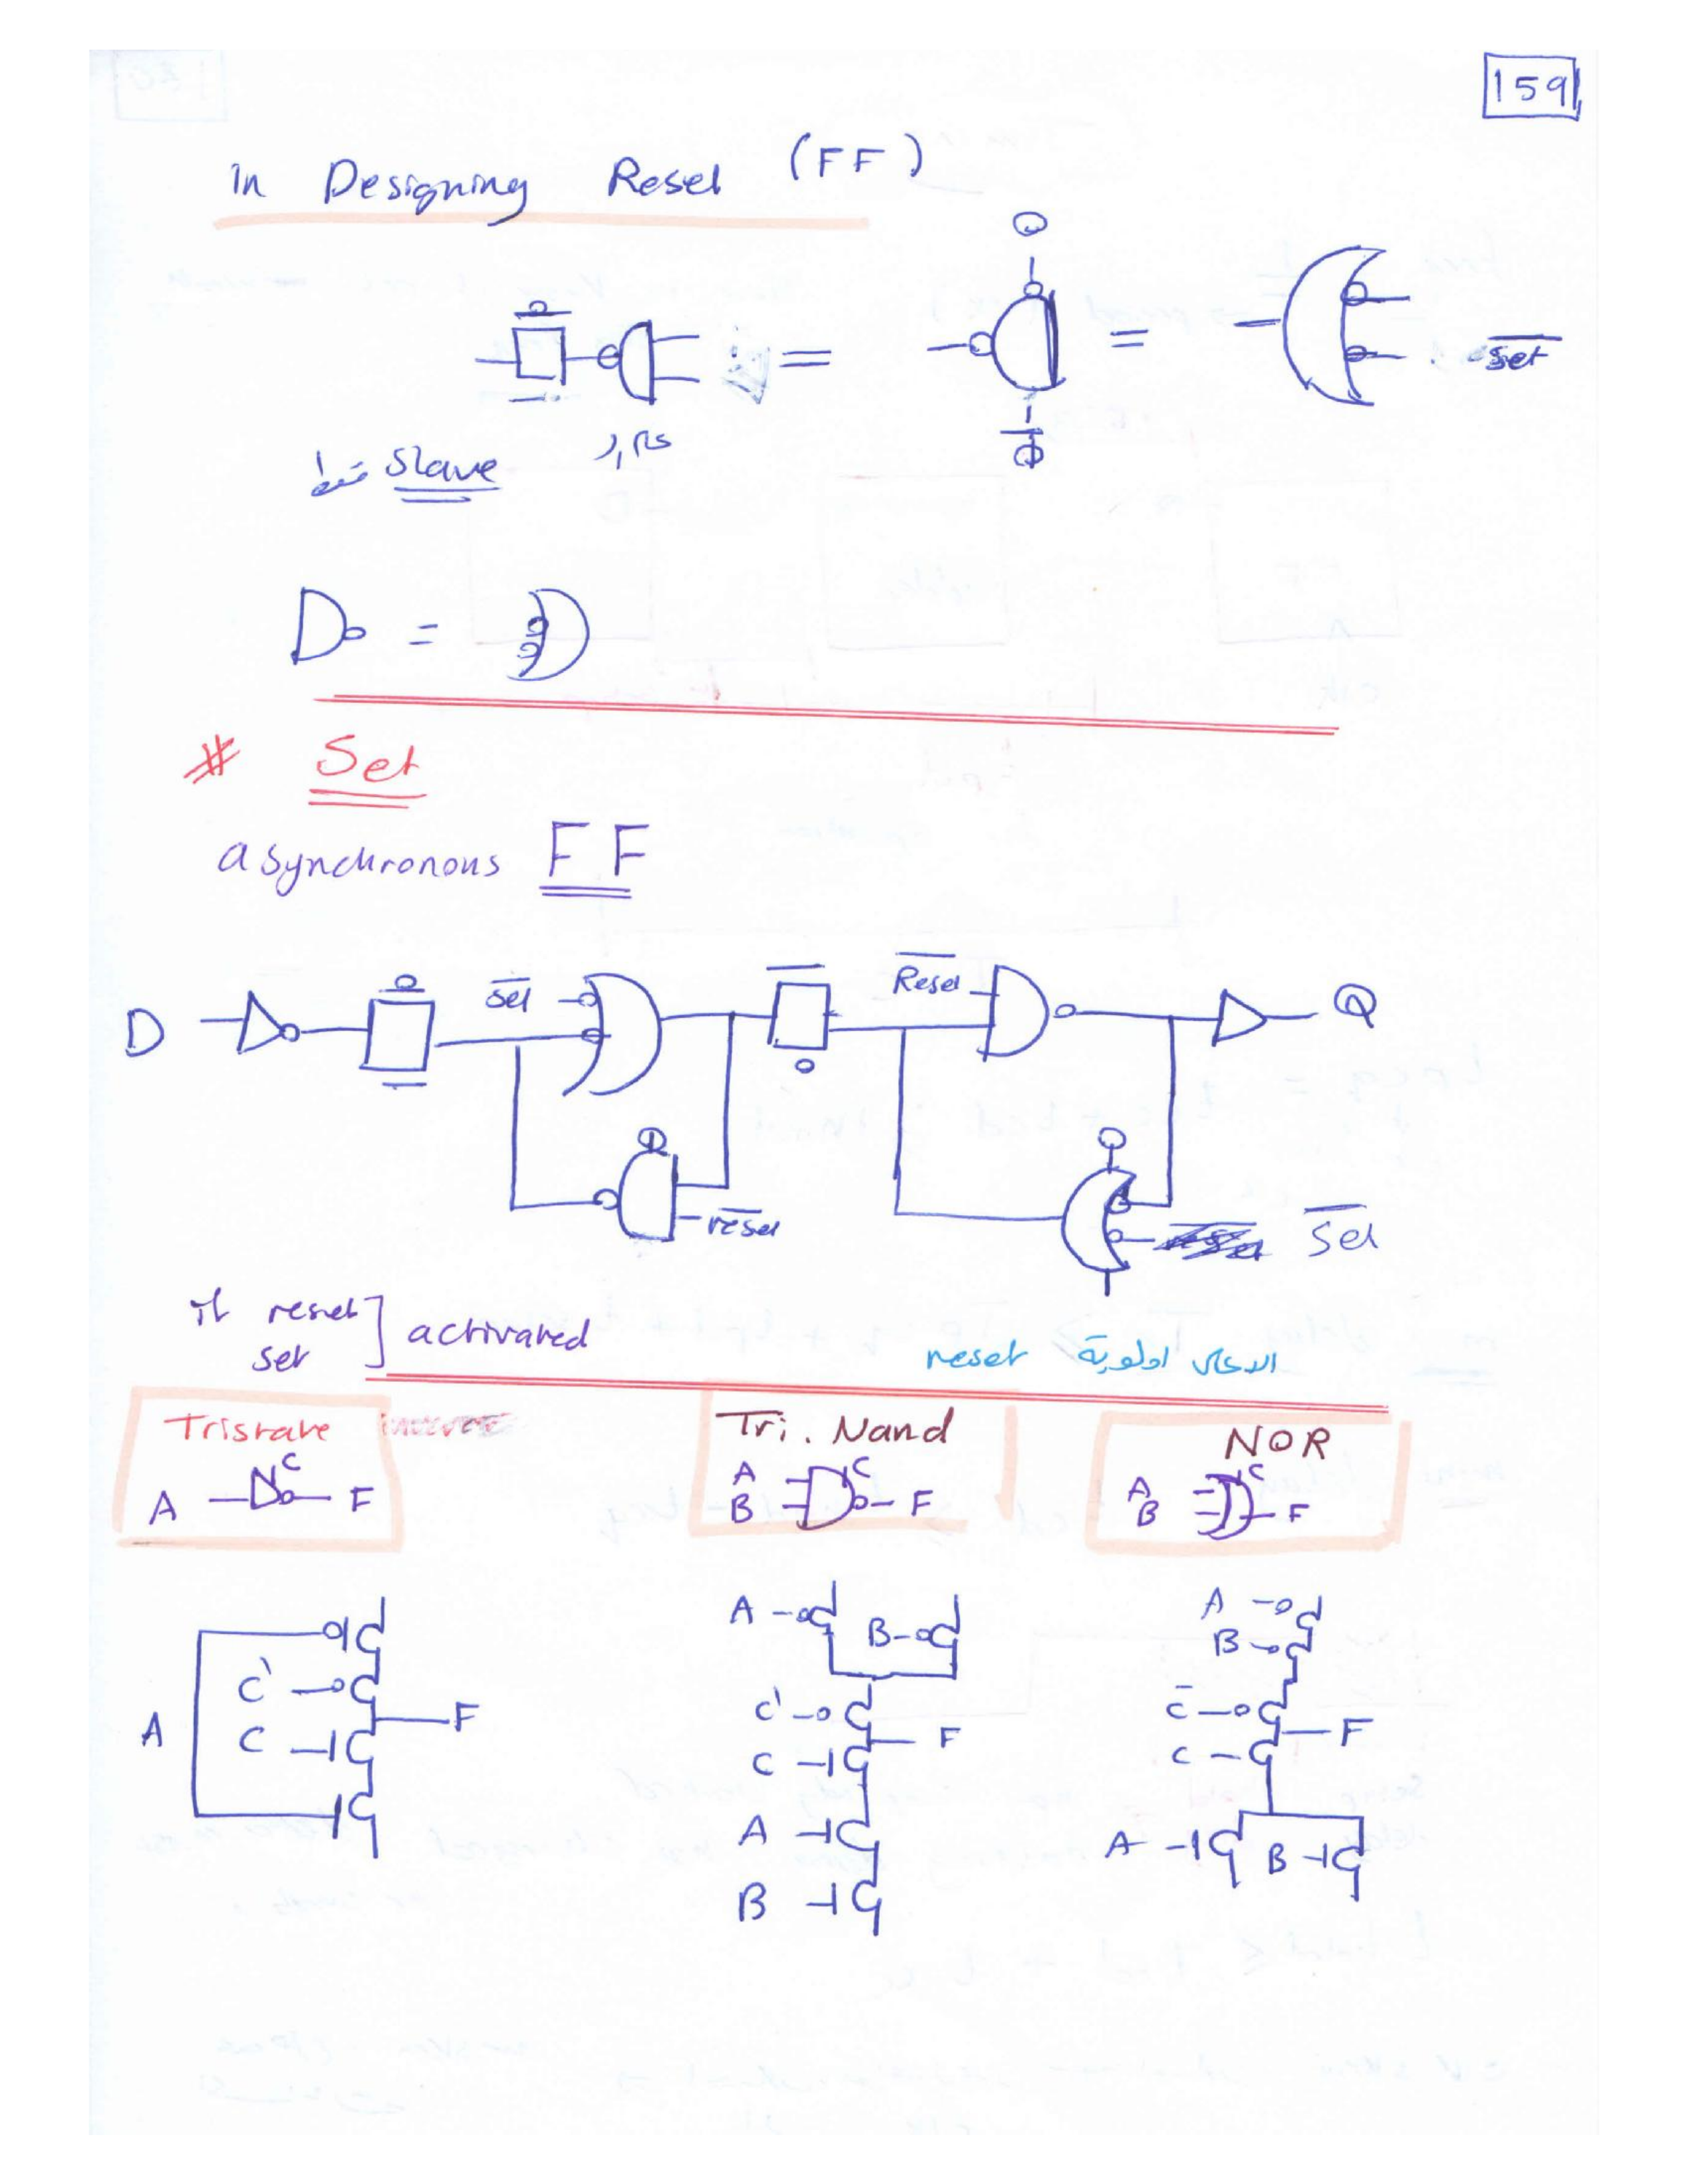 159
In Designing Reset (FF)
Φ
=
=
set
Φ
Slave فقط
=
# Set
asynchronous FF
D
set
Reset
Q
Φ
Φ
reset
Set
if reset
set
activated
reset
Tristate
A
C
F
Tri. Nand
A
B
C
F
NOR
A
B
C
F
A
C'
C
F
A
B
C'
C
F
A
B
A
B
C
C
F
A
B